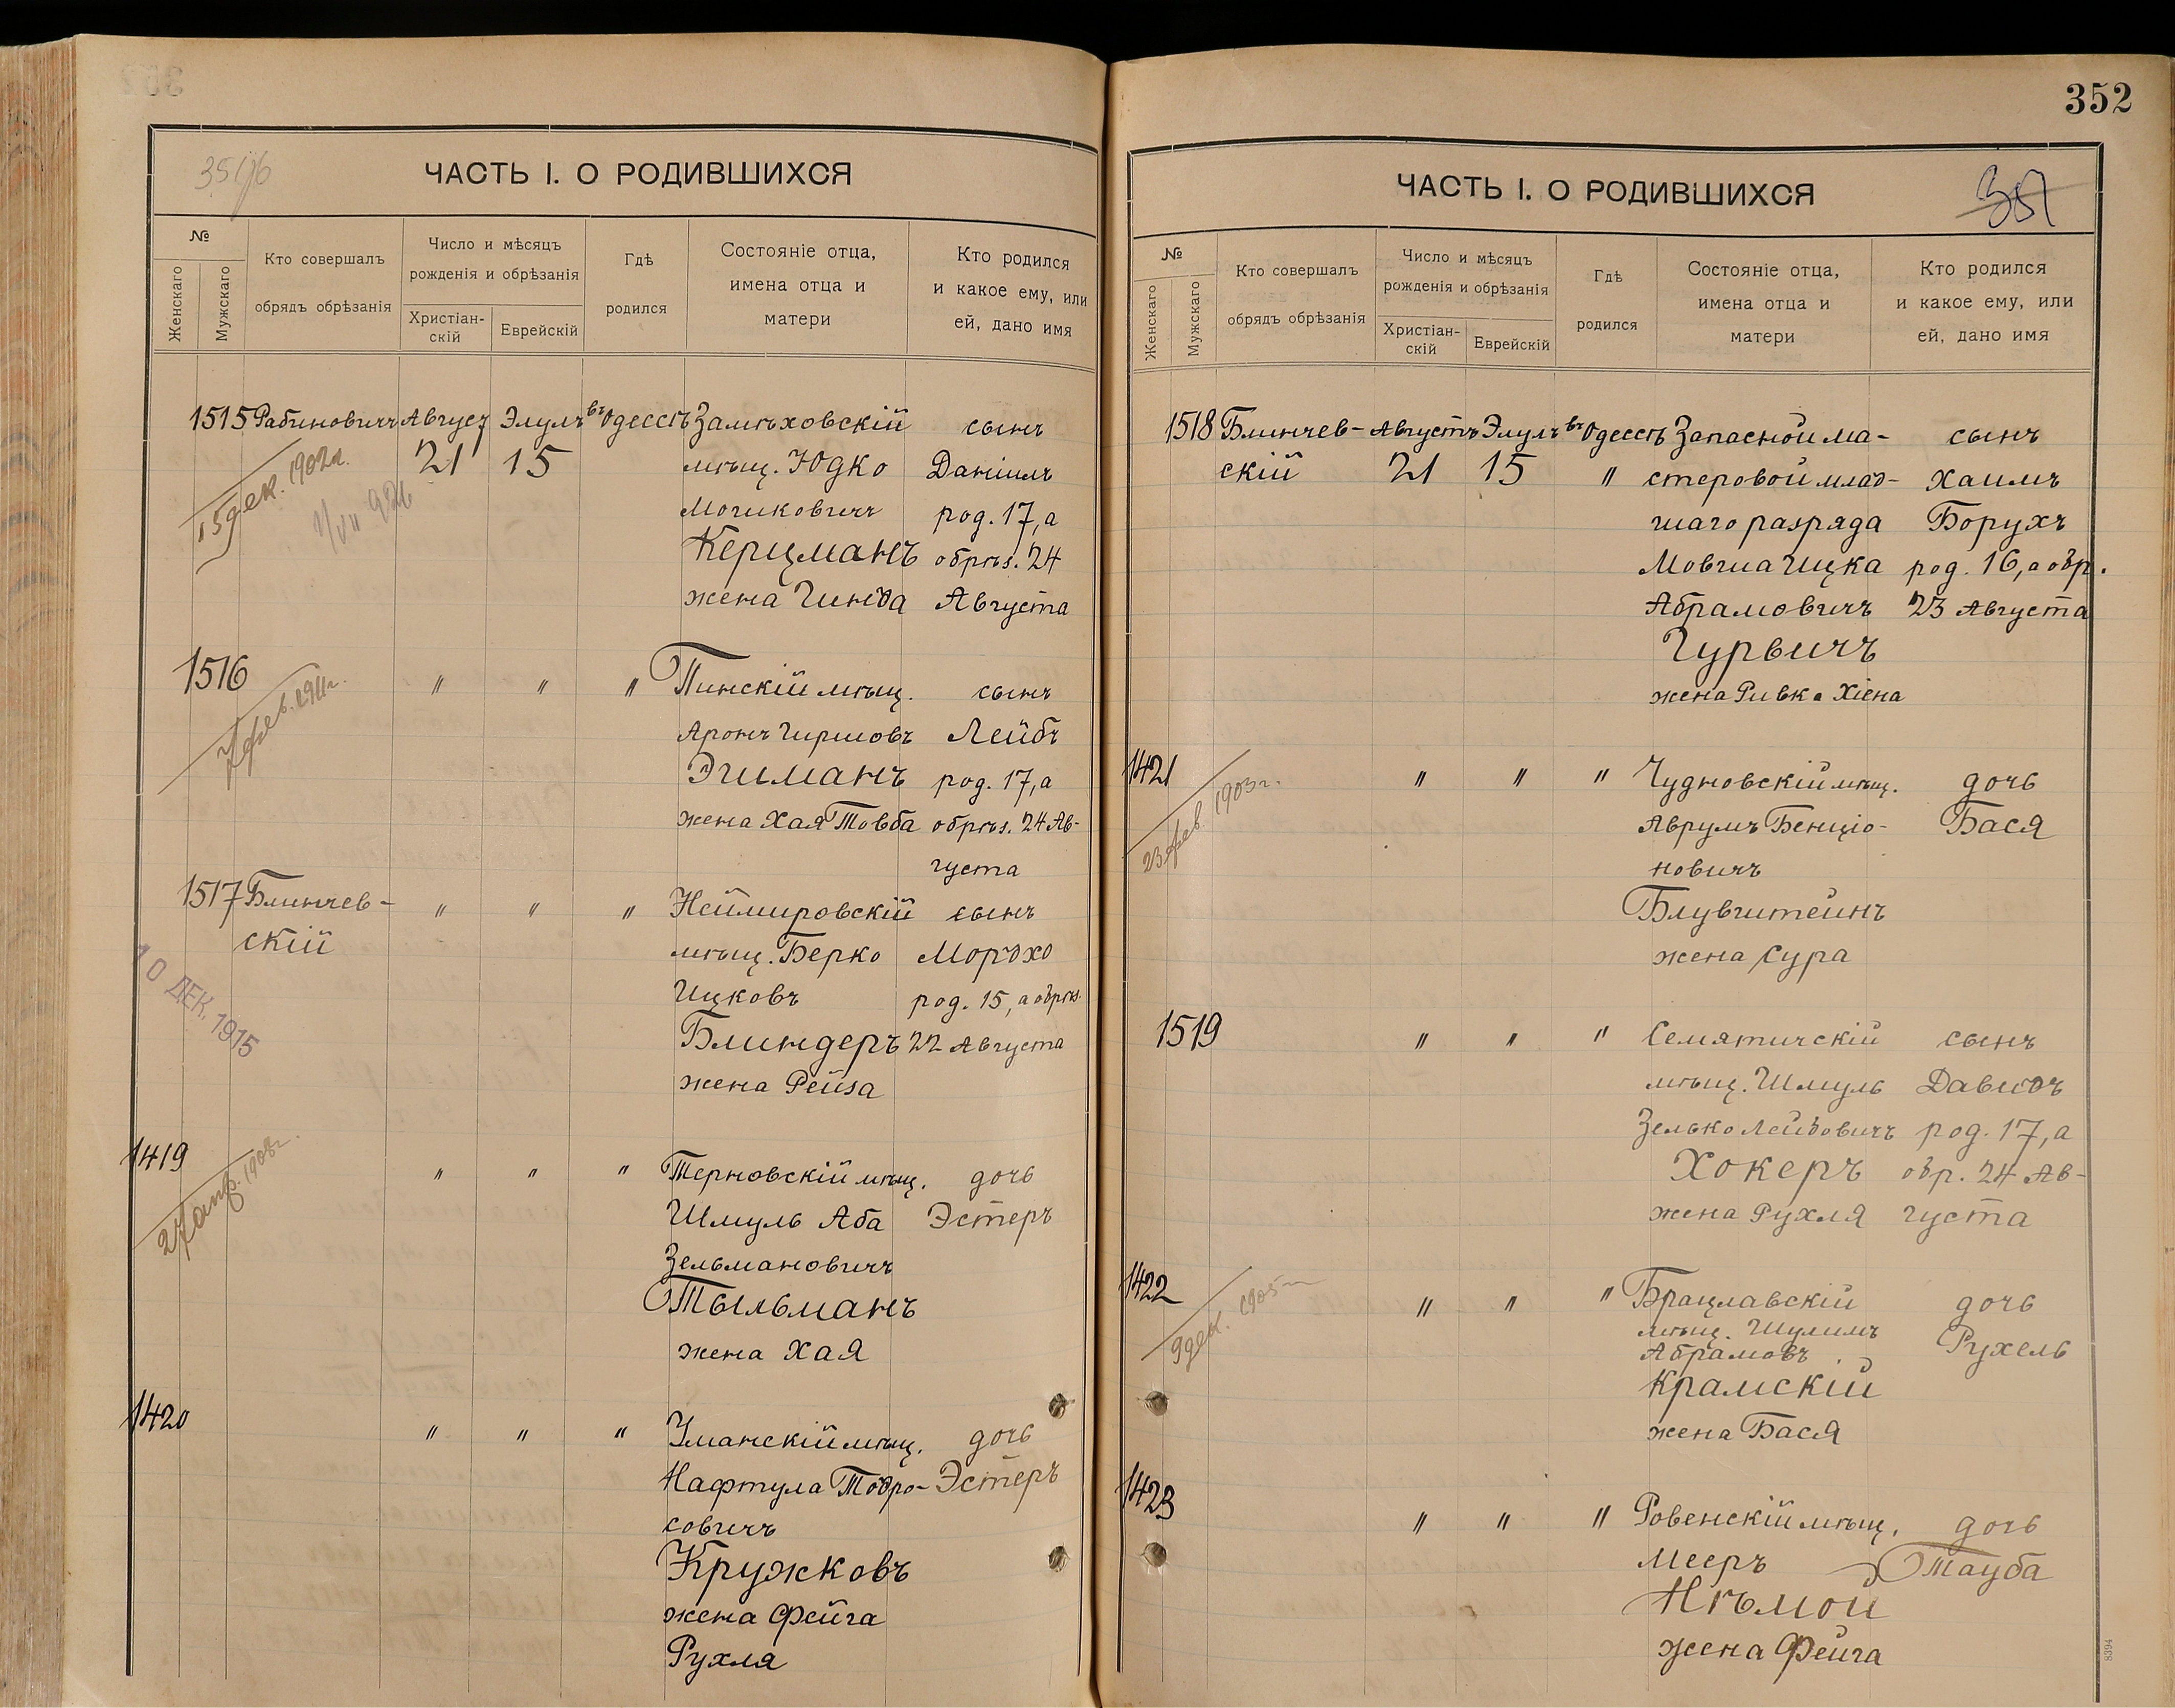 352
ЧАСТЬ I. О РОДИВШИХСЯ
№
Женскаго
Мужскаго
Кто совершалъ
обрядъ обрѣзанія
Число и мѣсяцъ
рожденія и обрѣзанія
Христіан-
скій
Еврейскій
Гдѣ
родился
Состояніе отца,
имена отца и
матери
Кто родился
и какое ему, или
ей, дано имя
1515 Рабиновичъ Август Элулъ въ Одессѣ Замѣховскій сынъ
15 дек. 1902 г. 21 15 мѣщ. Юдко Даніилъ
Мошковичъ род. 17, а
Керцманъ обрѣз. 24
жена Гинда Августа
1516 " " " Пинскій мѣщ. сынъ
7 фев. 1911 г. Аронъ Гиршовъ Лейбъ
Эгиманъ род. 17, а
жена Хая Товба обрѣз. 24 Ав-
густа
1517 Блинчев- " " " Немировскій сынъ
скій мѣщ. Берко Мордхо
10 ДЕК. 1915
Ицковъ род. 15, а обрѣз.
Блиндеръ 22 Августа
жена Рейза
1419 " " " Терновскій мѣщ. дочь
Шмуль Аба Эстеръ
Зельмановичъ
Тыльманъ
жена Хая
1420 " " " Уманскій мѣщ. дочь
Нафтула Тодро- Эстеръ
совичъ
Кружковъ
жена Фейга
Рухля
ЧАСТЬ I. О РОДИВШИХСЯ
№
Женскаго
Мужскаго
Кто совершалъ
обрядъ обрѣзанія
Число и мѣсяцъ
рожденія и обрѣзанія
Христіан-
скій
Еврейскій
Гдѣ
родился
Состояніе отца,
имена отца и
матери
Кто родился
и какое ему, или
ей, дано имя
1518 Блинчев- Августъ Элулъ въ Одессѣ Запасной ма- сынъ
скій 21 15 " стеровой млад- Хаимъ
шаго разряда Борухъ
Мовша Ицка род. 16, а обр.
Абрамовичъ 23 Августа
Гурвичъ
жена Ривка Хіена
1421 " " " Чудновскій мѣщ. дочь
23 фев. 1903 г. Аврумъ Бенціо- Бася
новичъ
Блувштейнъ
жена Сура
1519 " " " Семятичскій сынъ
мѣщ. Шмуль Давидъ
Зелько Лейбовичъ род. 17, а
Хокеръ обр. 24 Ав-
жена Рухля густа
1422 " " " Брацлавскій дочь
9 дек. 1905 мѣщ. Шулимъ
Абрамовъ Рухель
Крамскій
жена Бася
1423 " " " Ровенскій мѣщ. дочь
Мееръ Тауба
Нѣмой
жена Фейга
8394